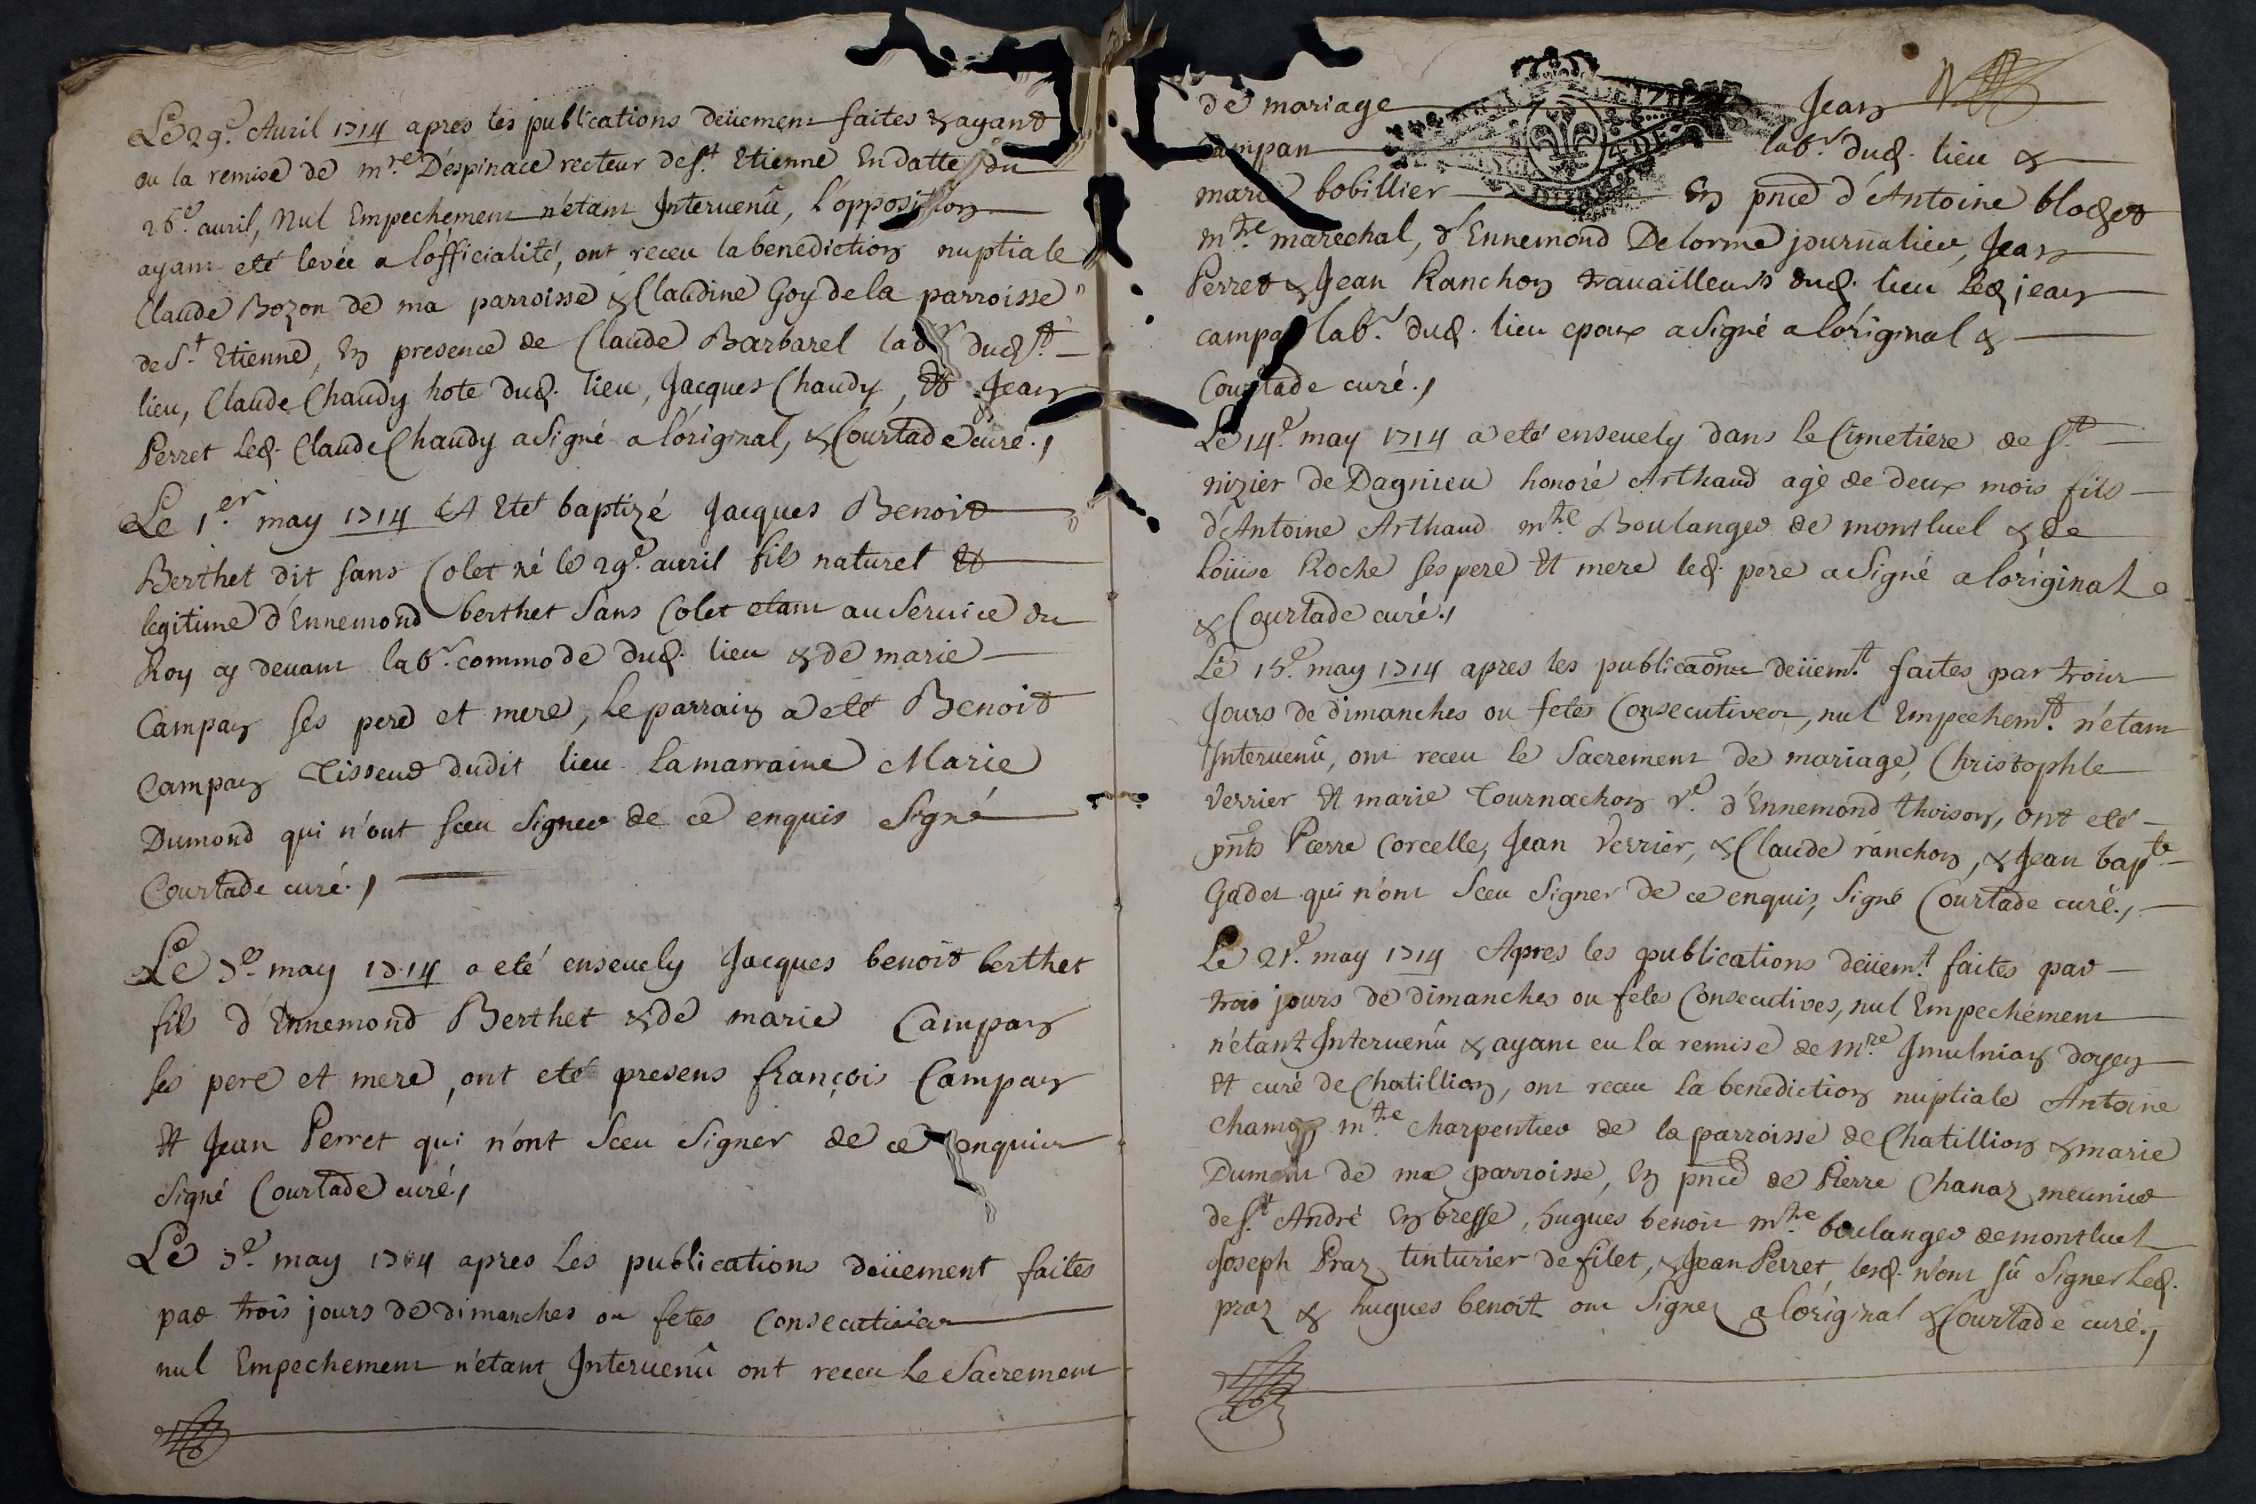 Le 29e. Auril 1714 apres les publications deüement faites & ayant
eu la remise de mre. Despinace recteur de st. Etienne En datte du
26e. auril, Nul Empechement n'étant Interuenû, l'opposition
ayant eté levée a l'officialité, ont receu la benediction nuptiale
Claude Bozon de ma parroisse & Claudine Goy de la parroisse
de St. Etienne, En presence de Claude Barbarel labr dud. st.
lieu, Claude Chaudy hote dud. lieu, Jacques Chaudy, Et Jean
Perret led. Claude Chaudy a signé a l'original, & Courtade curé.
Le 1er. may 1714 A Eté baptizé Jacques Benoit
Berthet dit sans Colet né le 29e. auril fils naturel Et
legitime d'Ennemond berthet sans Colet etant au seruice du
Roy cy deuant labr. commode dud. lieu & de marie
Campan ses pere et mere, le parrain a eté Benoit
Campan Tisseur dudit lieu la marraine Marie
Dumond qui n'ont sceu signer de ce enquis signé
Courtade curé.
Le 3e. may 1714 a eté enseuely Jacques benoit berthet
fils d'Ennemond Berthet & de marie Campan
ses pere et mere, ont eté presens françois Campan
Et Jean Perret qui n'ont sceu signer de ce enquis
signé Courtade curé.
Le 3e. may 1714 apres les publications deüement faites
par trois jours de dimanches ou fetes consecutives
nul Empechement n'etant Interuenû ont receu le Sacrement
de mariage Jean
Campan labr. dud. lieu &
marie bobillier En pnce d'Antoine blochet
mtre marechal, d'Ennemond Delorme journalier, Jean
Perret & Jean Ranchon trauailleurs dud. lieu led jean
campan labr. dud. lieu epoux a signé a l'original &
Courtade curé.
Le 14e. may 1714 a eté enseuely dans le Cimetiere de st.
nizier de Dagnieu honoré Arthaud agé de deux mois fils
d'Antoine Arthaud mtre. Boulanger de montluel & de
Loüise Roche ses pere Et mere led. pere a signé a l'original
& Courtade curé.
Le 15e. may 1714 apres les publicaons deüemt. faites par trois
Jours de dimanches ou fetes Consecutives, nul Empechemt. n'etant
Interuenû, ont receu le Sacrement de mariage, Christophle
Verrier Et marie Tournachon ve. d'Ennemond thoison, ont eté
pnts Pierre Corcelle, Jean Verrier, & Claude ranchon, & Jean bapte
Gadet qui n'ont sceu signer de ce enquis, signé Courtade curé.
Le 21e. may 1714 Apres les publications deüemt. faites par
trois jours de dimanches ou fetes Consecutives, nul Empechement
n'étant Interuenû & ayant eu la remise de mre. doyen
Et curé de Chatillion, ont receu la benediction nuptiale Antoine
mtre charpentier de la parroisse de Chatillion & marie
Dumont de ma parroisse, En pnce de Pierre Chanaz meunier
de st. André En bresse, hugues benoit mtre. boulanger de montluel
Joseph Praz tinturier de filet, & Jean Perret, lesd. n'ont sû signer led.
praz & hugues benoit ont signez a l'original & Courtade curé.